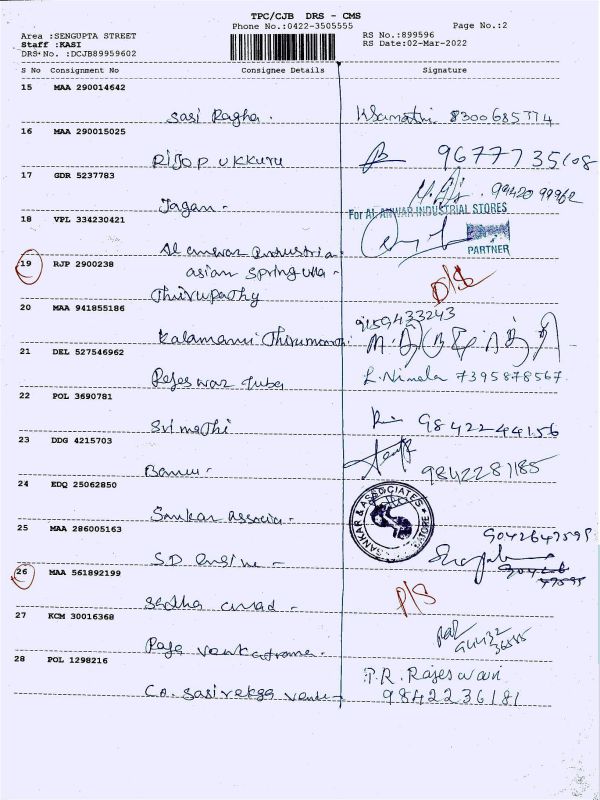 TPC/CJB DRS - CMS
Phone No.:0422-3505555
Page No.:2
Area :SENGUPTA STREET
RS No.:899596
Staff :KASI
RS Date:02-Mar-2022
DRS No. :DCJB89959602
S No Consignment No Consignee Details Signature
15 MAA 290014642
Sasi Ragha. 8300685774
16 MAA 290015025
RIJO P UKKURU 9677735108
17 GDR 5237783
Jagan-
18 VPL 334230421
For AL ANWAR INDUSTRIAL STORES
PARTNER
19 RJP 2900238
asian spring
D/S
Thirupathy
20 MAA 941855186
9159433243
21 DEL 527546962
L. Nimala 7395878567.
22 POL 3690781
Srimathi 9842244156
23 DDG 4215703
Banu- 9842281185
24 EDQ 25062850
Sankar Associa-
SANKAR & ASSOCIATES
25 MAA 286005163
9042647595
S.D engine -
26 MAA 561892199
D/S
27 KCM 30016368
Raja
94432
36585
28 POL 1298216
P.R. Rajeswari
9842236181